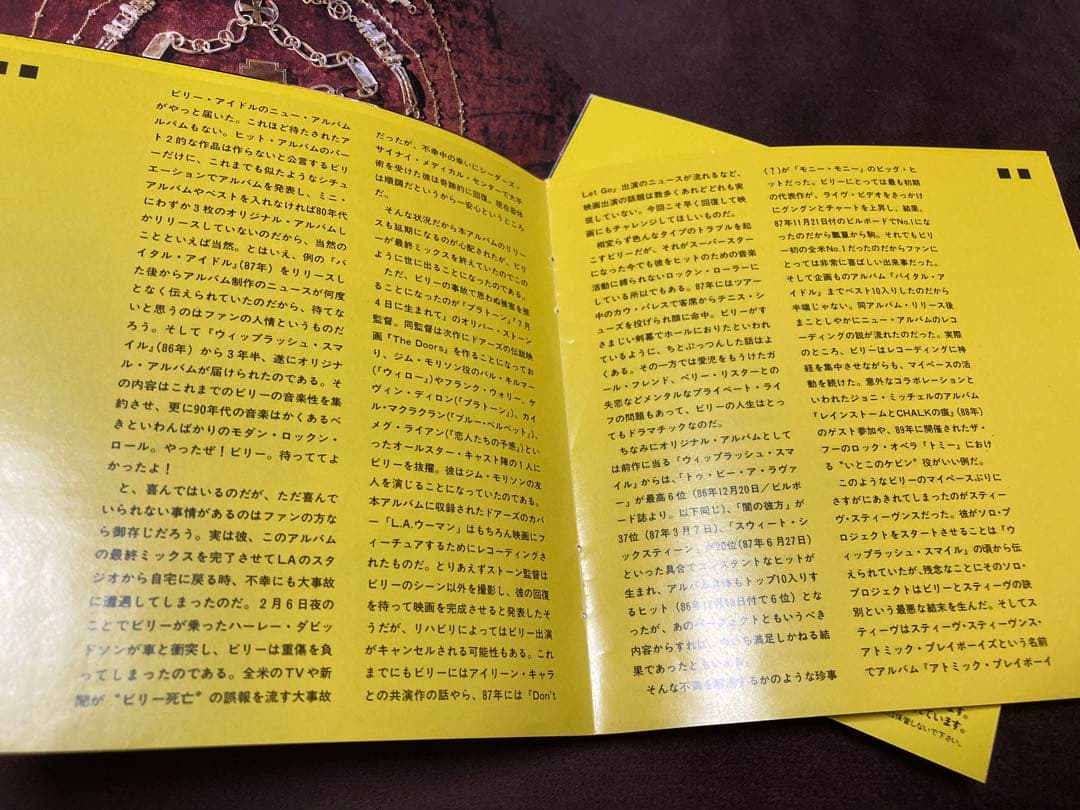 ビリー・アイドルのニュー・アルバム
がやっと届いた。これほど待たされたア
ルバムもない。ヒット・アルバムのパー
ト2的な作品は作らないと公言するビリ
ーだけに、これまでも似たようなシチュ
エーションでアルバムを発表し、ミニ・
アルバムやベストを入れなければ80年代
にわずか3枚のオリジナル・アルバムし
かリリースしていないのだから、当然の
ことといえば当然。とはいえ、例の『バ
イタル・アイドル』(87年)をリリースし
た後からアルバム制作のニュースが何度
となく伝えられていたのだから、待てな
いと思うのはファンの人情というものだ
ろう。そして『ウィップラッシュ・スマ
イル』(86年)から3年半、遂にオリジナ
ル・アルバムが届けられたのである。そ
の内容はこれまでのビリーの音楽性を集
約させ、更に90年代の音楽はかくあるべ
きといわんばかりのモダン・ロックン・
ロール。やったぜ!ビリー。待っててよ
かったよ!
と、喜んではいるのだが、ただ喜んで
いられない事情があるのはファンの方な
ら御存じだろう。実は彼、このアルバム
の最終ミックスを完了させてLAのスタ
ジオから自宅に戻る時、不幸にも大事故
に遭遇してしまったのだ。2月6日夜の
ことでビリーが乗ったハーレー・ダビッ
ドソンが車と衝突し、ビリーは重傷を負
ってしまったのである。全米のTVや新
聞が“ビリー死亡”の誤報を流す大事故
だったが、不幸中の幸いにシーダーズ・
サイナイ・メディカル・センターで大手
術を受けた彼は奇跡的に回復。現在容体
は順調だというから一安心というところ
だ。
そんな状況だから本アルバムのリリー
スも延期になるのが心配されたが、ビリ
ーが最終ミックスを終えていたのでこの
ように世に出ることになったのである。
ただ、ビリーの事故で思わぬ被害を被
ることになったのが『プラトーン』『7月
4日に生まれて』のオリバー・ストーン
監督。同監督は次作にドアーズの伝説映
画『The Doors』を作ることになってお
り、ジム・モリソン役のバル・キルマー
(『ウィロー』)やフランク・ウォリー、ケ
ヴィン・ディロン(『プラトーン』)、カイ
ル・マクラクラン(『ブルー・ベルベット』)、
メグ・ライアン(『恋人たちの予感』)とい
ったオールスター・キャスト陣の1人に
ビリーを抜擢。彼はジム・モリソンの友
人を演じることになっていたのである。
本アルバムに収録されたドアーズのカバ
ー「L.A.ウーマン」はもちろん映画にフ
ィーチュアするためにレコーディングさ
れたものだ。とりあえずストーン監督は
ビリーのシーン以外を撮影し、彼の回復
を待って映画を完成させると発表したそ
うだが、リハビリによってはビリー出演
がキャンセルされる可能性もある。これ
までにもビリーにはアイリーン・キャラ
との共演作の話やら、87年には『Don't
Let Go』出演のニュースが流れるなど、
映画出演の話題は数多くあれどどれも実
現していない。今回こそ早く回復して映
画にもチャレンジしてほしいものだ。
相変らず色んなタイプのトラブルを起
こすビリーだが、それがスーパースター
になった今でも彼をヒットのための音楽
活動に縛られないロックン・ローラーに
している所以でもある。87年にはツアー
中のカウ・パレスで客席からテニス・シ
ューズを投げられ顔に命中。ビリーがす
さまじい剣幕でホールにおりたといわれ
ているように、ちとぶっつんした話はよ
くある。その一方では愛児をもうけたガ
ール・フレンド、ペリー・リスターとの
失恋などメンタルなプライベート・ライ
フの問題もあって、ビリーの人生はとっ
てもドラマチックなのだ。
ちなみにオリジナル・アルバムとして
は前作に当る『ウィップラッシュ・スマ
イル』からは、「トゥ・ビー・ア・ラヴァ
ー」が最高6位(86年12月20日/ビルボ
ード誌より。以下同じ)、「闇の彼方」が
37位(87年3月7日)、「スウィート・シ
ックスティーン」が20位(87年6月27日)
といった具合でコンスタントなヒットが
生まれ、アルバム自体もトップ10入りす
るヒット(86年12月 日付で6位)とな
ったが、あのパーフェクトともいうべき
内容からすれば、 いち満足しかねる結
果であったともいえる。
そんな不満を解消するかのような珍事
(?)が「モニー・モニー」のビッグ・ヒ
ットだった。ビリーにとっては最も初期
の代表作が、ライヴ・ビデオをきっかけ
にグングンとチャートを上昇し、結果、
87年11月21日付のビルボードでNo.1にな
ったのだから瓢箪から駒。それでもビリ
ー初の全米No.1だったのだからファンに
とっては非常に喜ばしい出来事だった。
そして企画ものアルバム『バイタル・ア
イドル』までベスト10入りしたのだから
半端じゃない。同アルバム・リリース後
まことしやかにニュー・アルバムのレコ
ーディングの説が流れたのだった。実際
のところ、ビリーはレコーディングに神
経を集中させながらも、マイペースの活
動を続けた。意外なコラボレーションと
いわれたジョニ・ミッチェルのアルバム
『レインストームとCHALKの痕』(88年)
のゲスト参加や、89年に開催されたザ・
フーのロック・オペラ『トミー』におけ
る“いとこのケビン”役がいい例だ。
このようなビリーのマイペースぶりに
さすがにあきれてしまったのがスティー
ヴ・スティーヴンスだった。彼がソロ・プ
ロジェクトをスタートさせることは『ウ
ィップラッシュ・スマイル』の頃から伝
えられていたが、残念なことにそのソロ・
プロジェクトはビリーとスティーヴの訣
別という最悪な結末を生んだ。そしてス
ティーヴはスティーヴ・スティーヴンス・
アトミック・プレイボーイズという名前
でアルバム『アトミック・プレイボーイ
ています。
は保管しないで下さい。